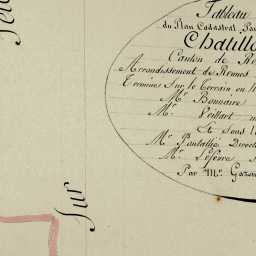 Tableau
du Plan Cadastral Pa
Chatillo
Canton de Re
Arrondissement de Rennes
Terminé Sur le Terrain en
Mr. Bonnaire
Mr. Veillart
Et Sous l
Mr. Pantallé Direct
Mr. Lefevre
Par Mr. Gazon
Sur